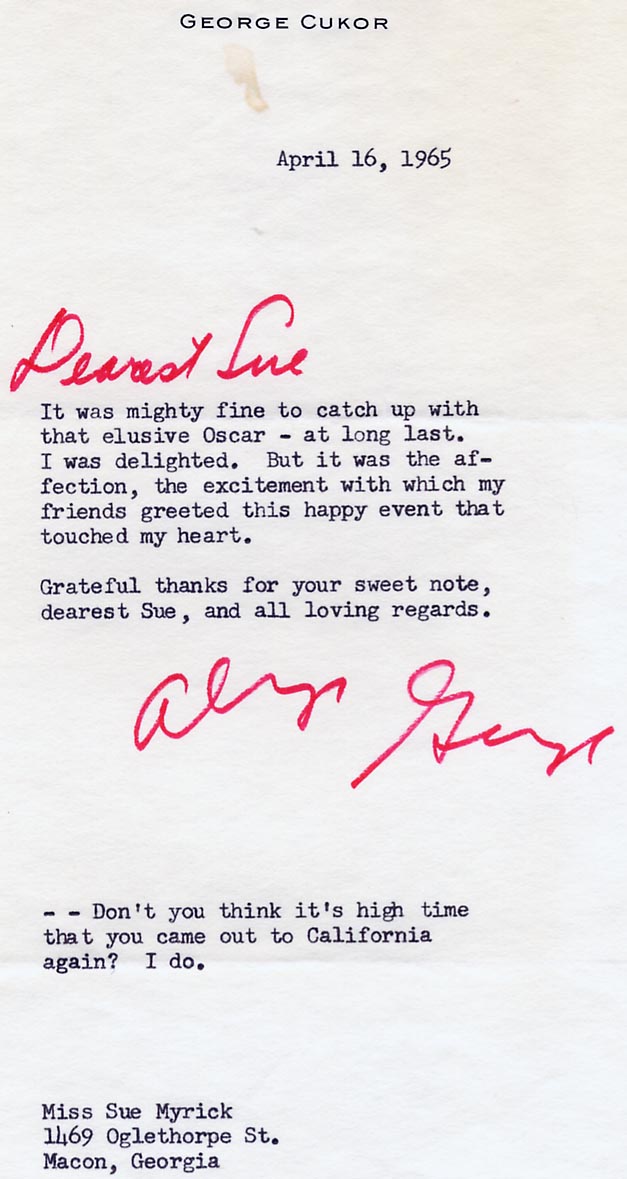 GEORGE CUKOR
April 16, 1965
Dearest Sue
It was mighty fine to catch up with
that elusive Oscar - at long last.
I was delighted.  But it was the af-
fection, the excitement with which my
friends greeted this happy event that
touched my heart.
Grateful thanks for your sweet note,
dearest Sue, and all loving regards.
Always George
- - Don't you think it's high time
that you came out to California
again?  I do.
Miss Sue Myrick
1469 Oglethorpe St.
Macon, Georgia